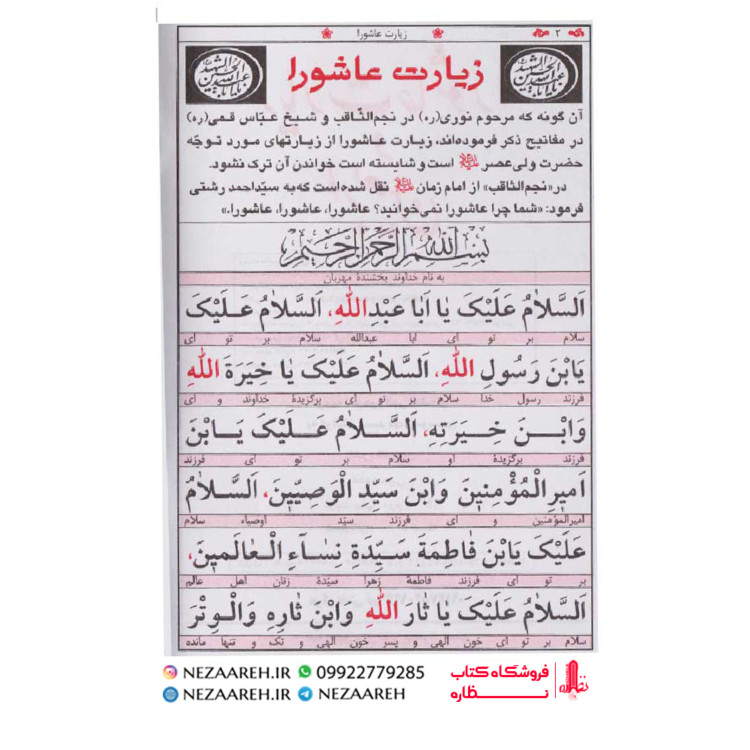 ۲
زیارت عاشورا
زیارت عاشورا
آن گونه که مرحوم نوری(ره) در نجم‌الثّاقب و شیخ عبّاس قمی(ره)
در مفاتیح ذکر فرموده‌اند، زیارت عاشورا از زیارتهای مورد توجّه
حضرت ولی‌عصر است و شایسته است خواندن آن ترک نشود.
در «نجم‌الثاقب» از امام زمان نقل شده است که به سیّداحمد رشتی
فرمود: «شما چرا عاشورا نمی‌خوانید؟ عاشورا، عاشورا، عاشورا.»
بِسْمِ اللهِ الرَّحْمٰنِ الرَّحِيمِ
به نام خداوند بخشندهٔ مهربان
اَلسَّلاٰمُ عَلَیْکَ یٰا اَبٰا عَبْدِاللّٰهِ، اَلسَّلاٰمُ عَلَیْکَ
سلام بر تو ای ابا عبدالله سلام بر تو ای
یَابْنَ رَسُولِ اللّٰهِ، اَلسَّلاٰمُ عَلَیْکَ یٰا خِیَرَةَ اللّٰهِ
فرزند رسول خدا سلام بر تو ای برگزیدهٔ خداوند و ای
وَابْنَ خِیَرَتِهِ، اَلسَّلاٰمُ عَلَیْکَ یَابْنَ
فرزند برگزیدهٔ او سلام بر تو ای فرزند
اَمیرِالْمُؤْمِنینَ وَابْنَ سَیِّدِ الْوَصِیّینَ، اَلسَّلاٰمُ
امیرالمؤمنین و ای فرزند سیّد اوصیاء سلام
عَلَیْکَ یَابْنَ فٰاطِمَةَ سَیِّدَةِ نِسٰاءِ الْعٰالَمینَ،
بر تو ای فرزند فاطمهٔ زهرا سیّدهٔ زنان اهل عالم
اَلسَّلاٰمُ عَلَیْکَ یٰا ثٰارَ اللّٰهِ وَابْنَ ثٰارِهِ وَالْوِتْرَ
سلام بر تو ای خون الهی و پسر خون الهی و تک و تنها مانده
NEZAAREH.IR 09922779285
NEZAAREH.IR NEZAAREH
فروشگاه کتاب
نظاره